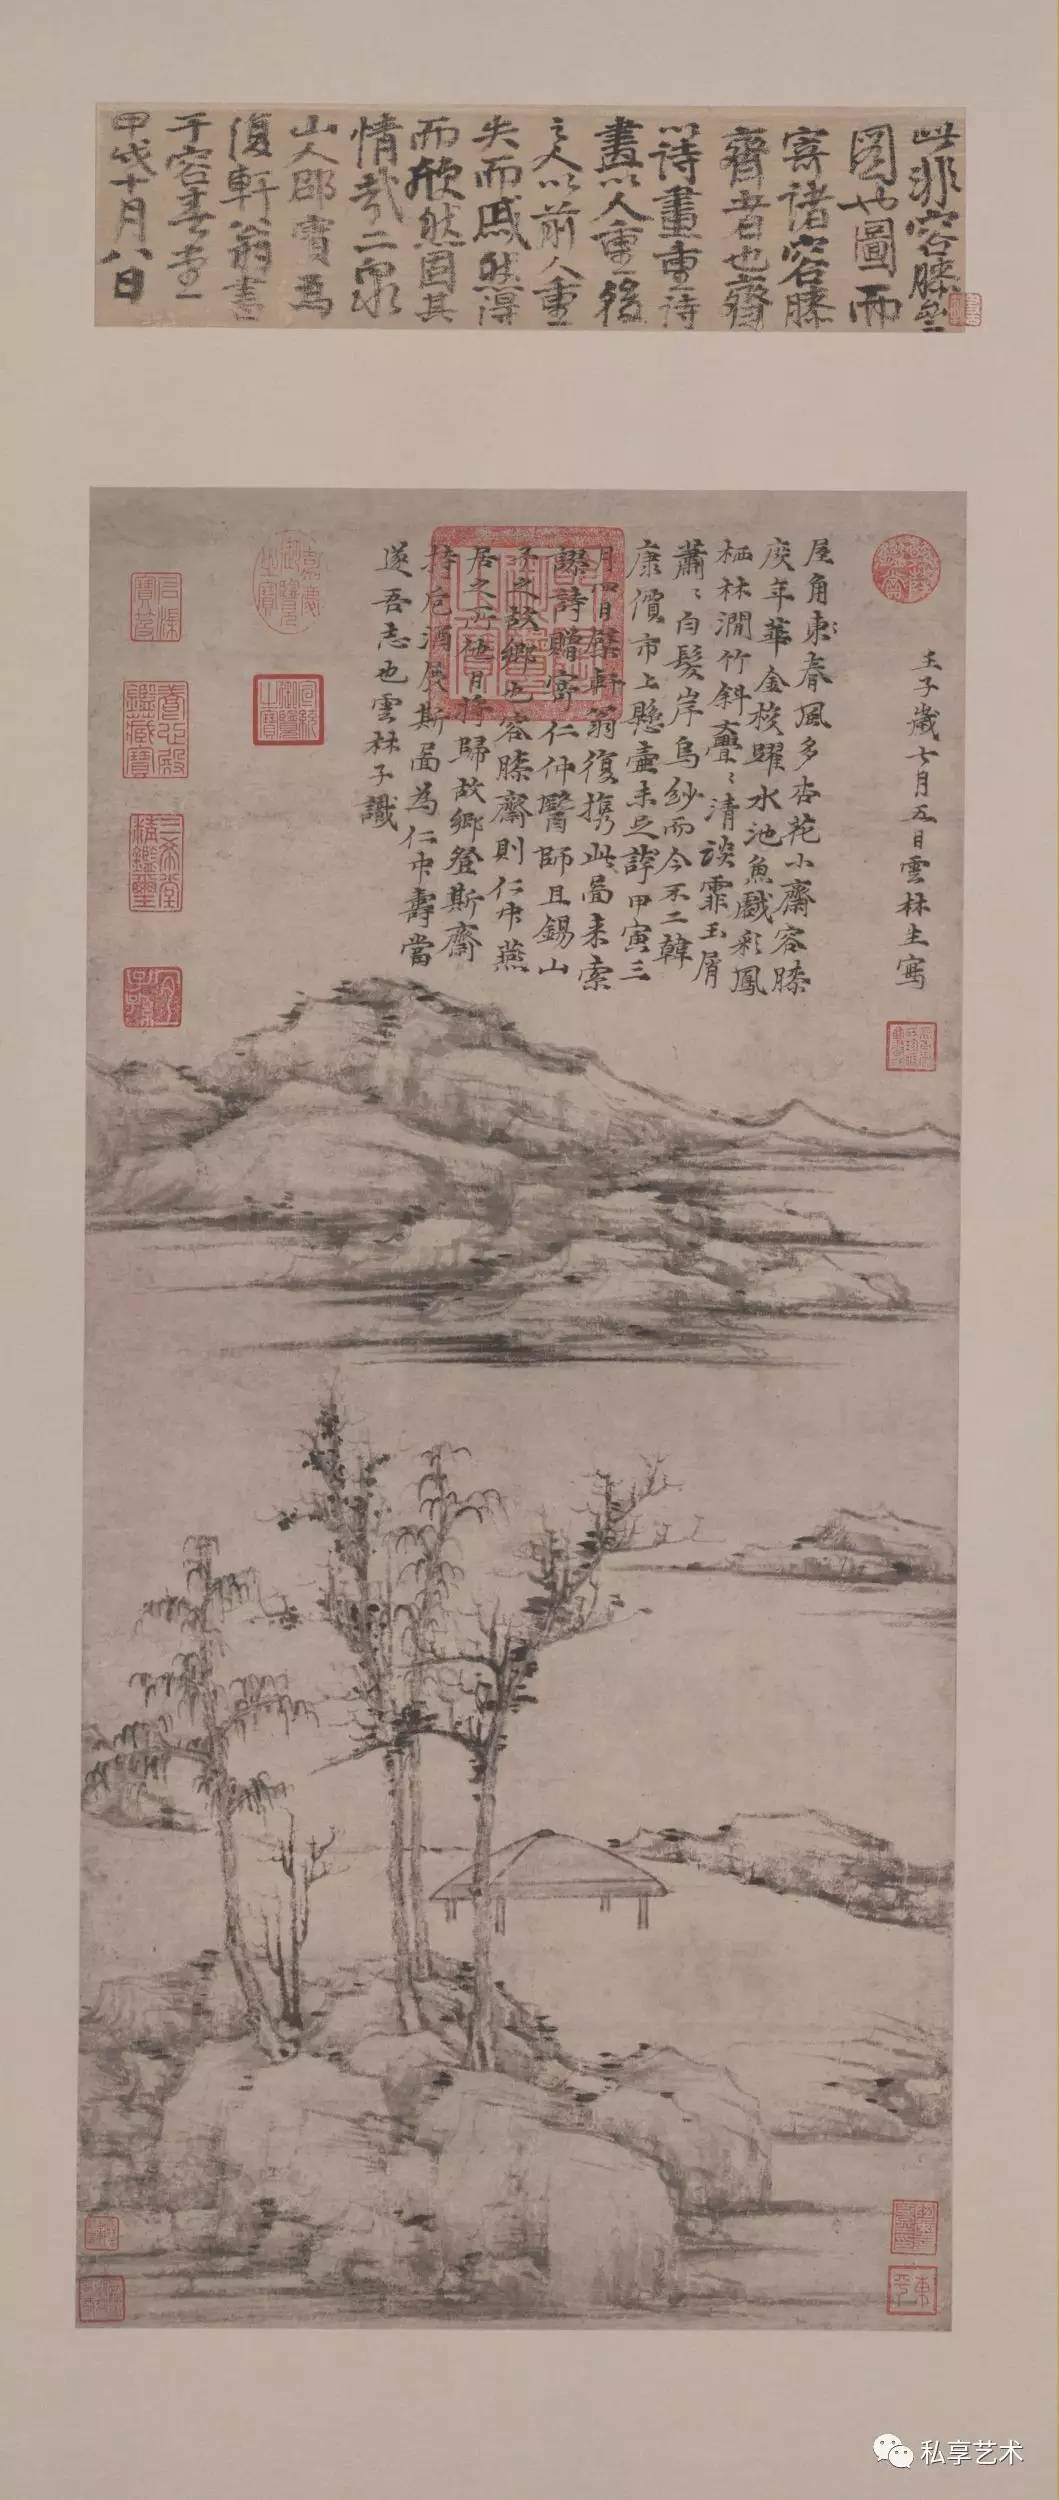 此非容膝
圖也圖而
寄諸容膝
齋者也齋
以詩畫重詩
畫以人重後
之人以前人重
失而戚然得
而欣然固其
情哉二泉
山人邵寶為
復軒翁書
于容春堂
甲戌十月八日
壬子歲七月五日雲林生寫
屋角東春風多杏花小齋容膝
度年華金梭躍水池魚戲彩鳳
栖林澗竹斜亹亹清談霏玉屑
蕭蕭白髮岸烏紗而今不二韓
康價市上懸壺未足誇甲寅三
月四日檗軒翁復携此啚來索
謬詩贈寄仁仲醫師且錫山
予之故鄉也容膝齋則仁仲燕
居之所他日將歸故鄉登斯齋
持卮酒展斯啚為仁仲壽當
遂吾志也雲林子識
石渠
寶笈
養心殿
鑑藏寶
三希堂
精鑑璽
宜
子孫
嘉慶
御覽
之寶
宣統
御覽
之寶
乾隆
私享艺术